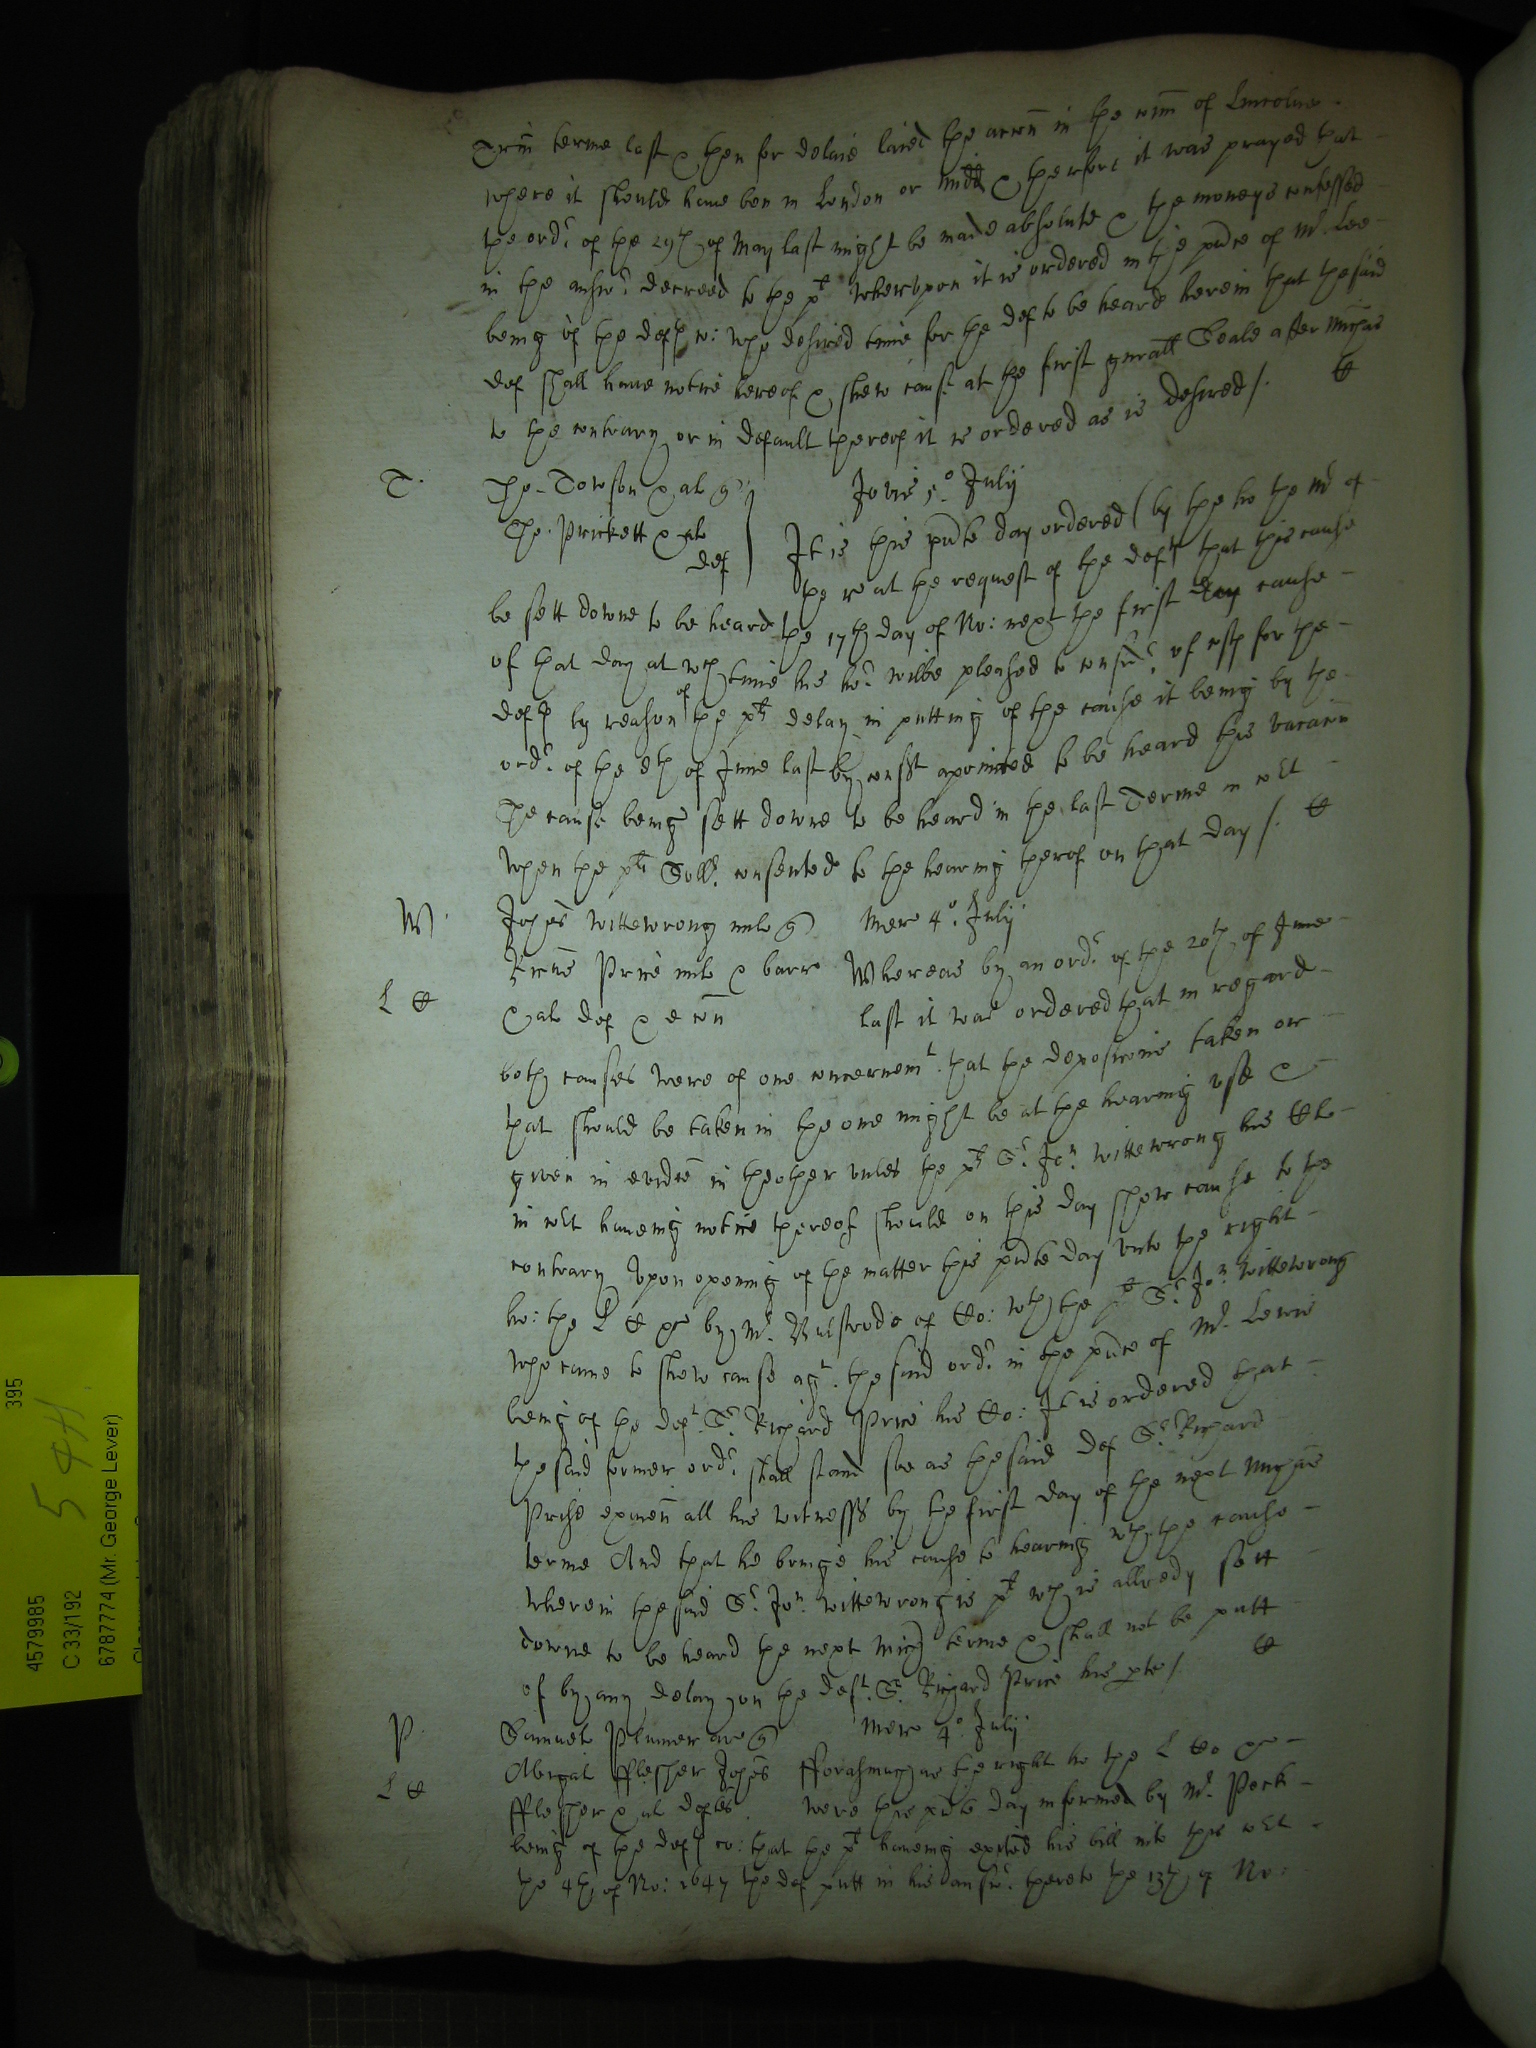 Trin terme last & then for delaie laied the accon in the com of Lincolne
where it should haue ben in London or Midd & therfore it was prayed that
the ordr. of the 29th of May last might be made absolute & the moneys confessed
in the answr. decreed to the plt Wherupon it is ordered in the pnce of Mr. Lee
being of the defts co: who desired time for the def to be heard herein that the said
def shall haue notice hereof & shew cause at the first gnrall Seale after Michas
to the contrary or in default thereof it is ordered as is desired /.
T. Tho. Towson & al q Jovis 5o. July
Tho. Prickett & al
def It is this pnte day ordered (by the ho the Mr of
the re at the request of the defts that this cause
be sett downe to be heard the 17th day of No: next the first day cause
of that day at wch time his hor. wilbe pleased to considr. of costs for the
defts by reason of the plts delay in putting of the cause it being by the
ordr. of the 8th of June last by consst apointed to be heard this vacacon
The cause being sett downe to be heard in the last Terme in cort
when the plts Sollr. consented to the hearing therof on that day /.
W. Johes Wittewrong mil q Mer 4o. July
Ricus Price mil & barr Whereas by an ordr. of the 20th of June
L
& al def & e con last it was ordered that in regard
both causes were of one concernemt. that the deposicons taken or
that should be taken in the one might be at the hearing vse &
given in evidce in the other vnles the plt Sr. Jon. Wittewrong his Cle
in cort haueing notice thereof should on this day shew cause to the
contrary Vpon opening of the matter this pnte day vnto the right
ho: the L C &c by Mr. Bulstrode of Co: wth the plt Sr. Jon. Wittewrong
who came to shew cause agt. the said ordr. in the pnce of Mr. Lewis
being of the deft. Sr. Richard Price his Co: It is ordered that
the said former ordr. shall stand soe as the said def Sr. Richard
Price examen all his witnesses by the first day of the next Michas
terme And that he bringe his cause to hearing wth the cause
wherein the said Sr. Jon. Wittewrong is plt wch is allredy sett
downe to be heard the next Mich terme & shall not be putt
of by any delay on the deft. Sr. Richard Price his pte /.
P. Samuel Plumer ar q Mer 4o. July
Abigal fflesher Johes fforasmuch as the right ho the L Co &c
L
fflesher & al deftes. were this pnte day informed by Mr. Peck
being of the defts co: that the plt haueing exhited his bill into this cort
the 4th of No: 1647 the def putt in his answr. thereto the 13th of No:
395
5 44
4579985
C 33/192
6787774 (Mr. George Lever)